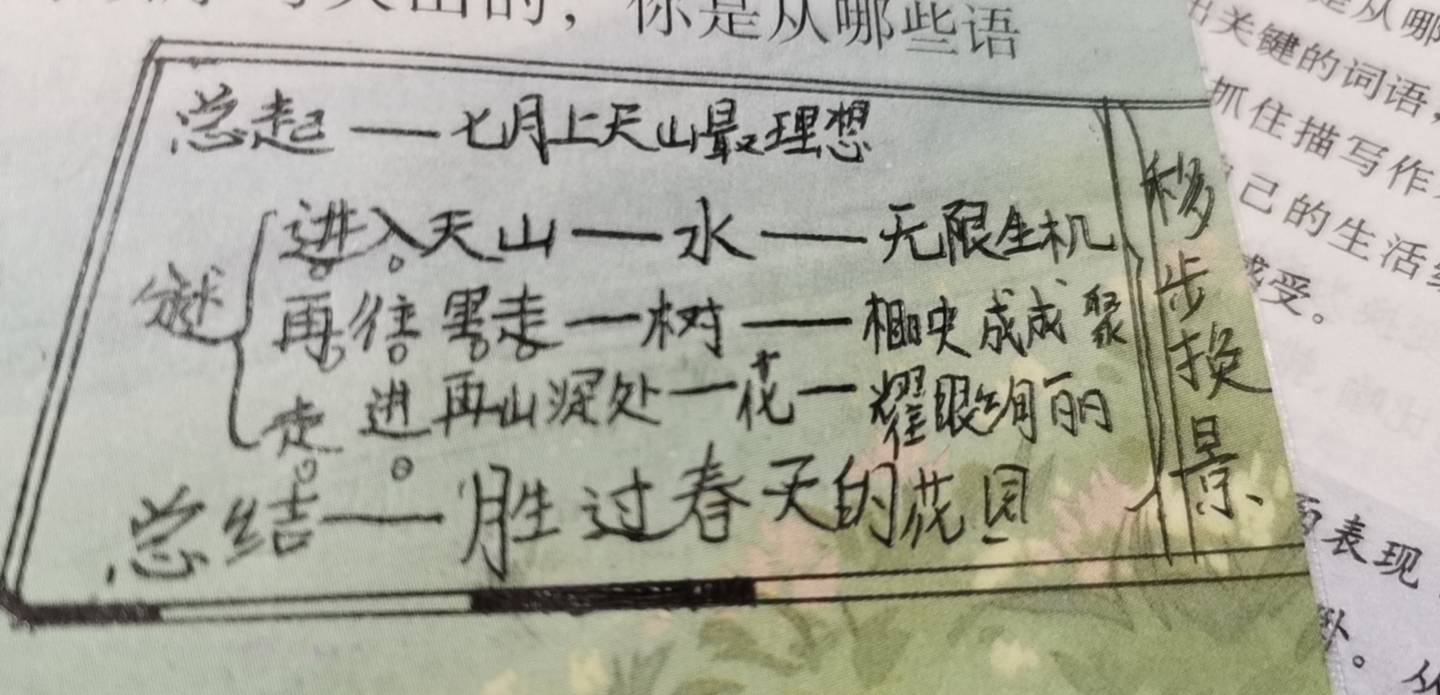 的，你是从哪些语
总起——七月上天山最理想
分述
进入天山——水——无限生机
再往里走——树——相映成成聚
走进再山深处——花——耀眼绚丽
总结——胜过春天的花园
移步换景
是从哪
关键的词语，
抓住描写作
己的生活
感受。
表现